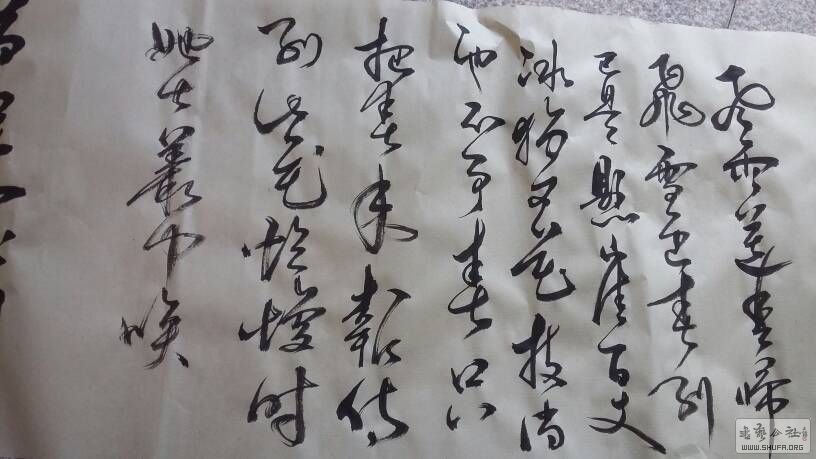 風雨送春歸
飛雪迎春到
已是懸崖百丈
冰猶有花枝俏
也不争春只
把春来報待
到山花爛漫时
她在叢中笑
书艺公社
WWW.SHUFA.ORG